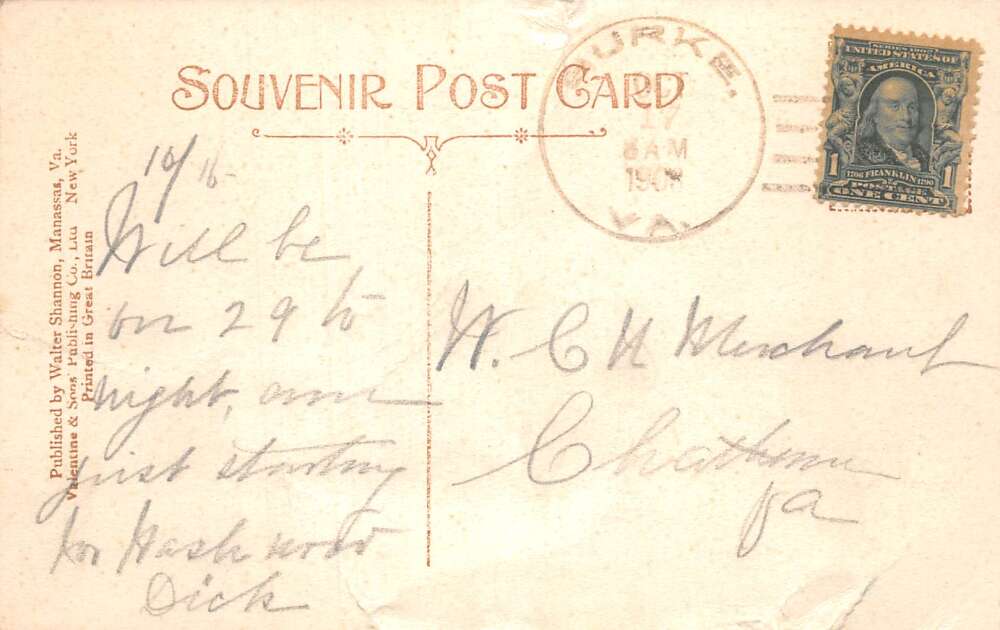 SOUVENIR POST CARD
BURKE,
OCT
17
8 AM
1908
VA.
SERIES 1902
UNITED STATES OF
AMERICA
1 1
1706 FRANKLIN 1790
POSTAGE
ONE CENT
Published by Walter Shannon, Manassas, Va.
Valentine & Sons' Publishing Co., Ltd New York
Printed in Great Britain
10/16-
Will be
on 29 to
night, am
just starting
for Wash now
Dick
W. C. N Merchant
Chatham
Va